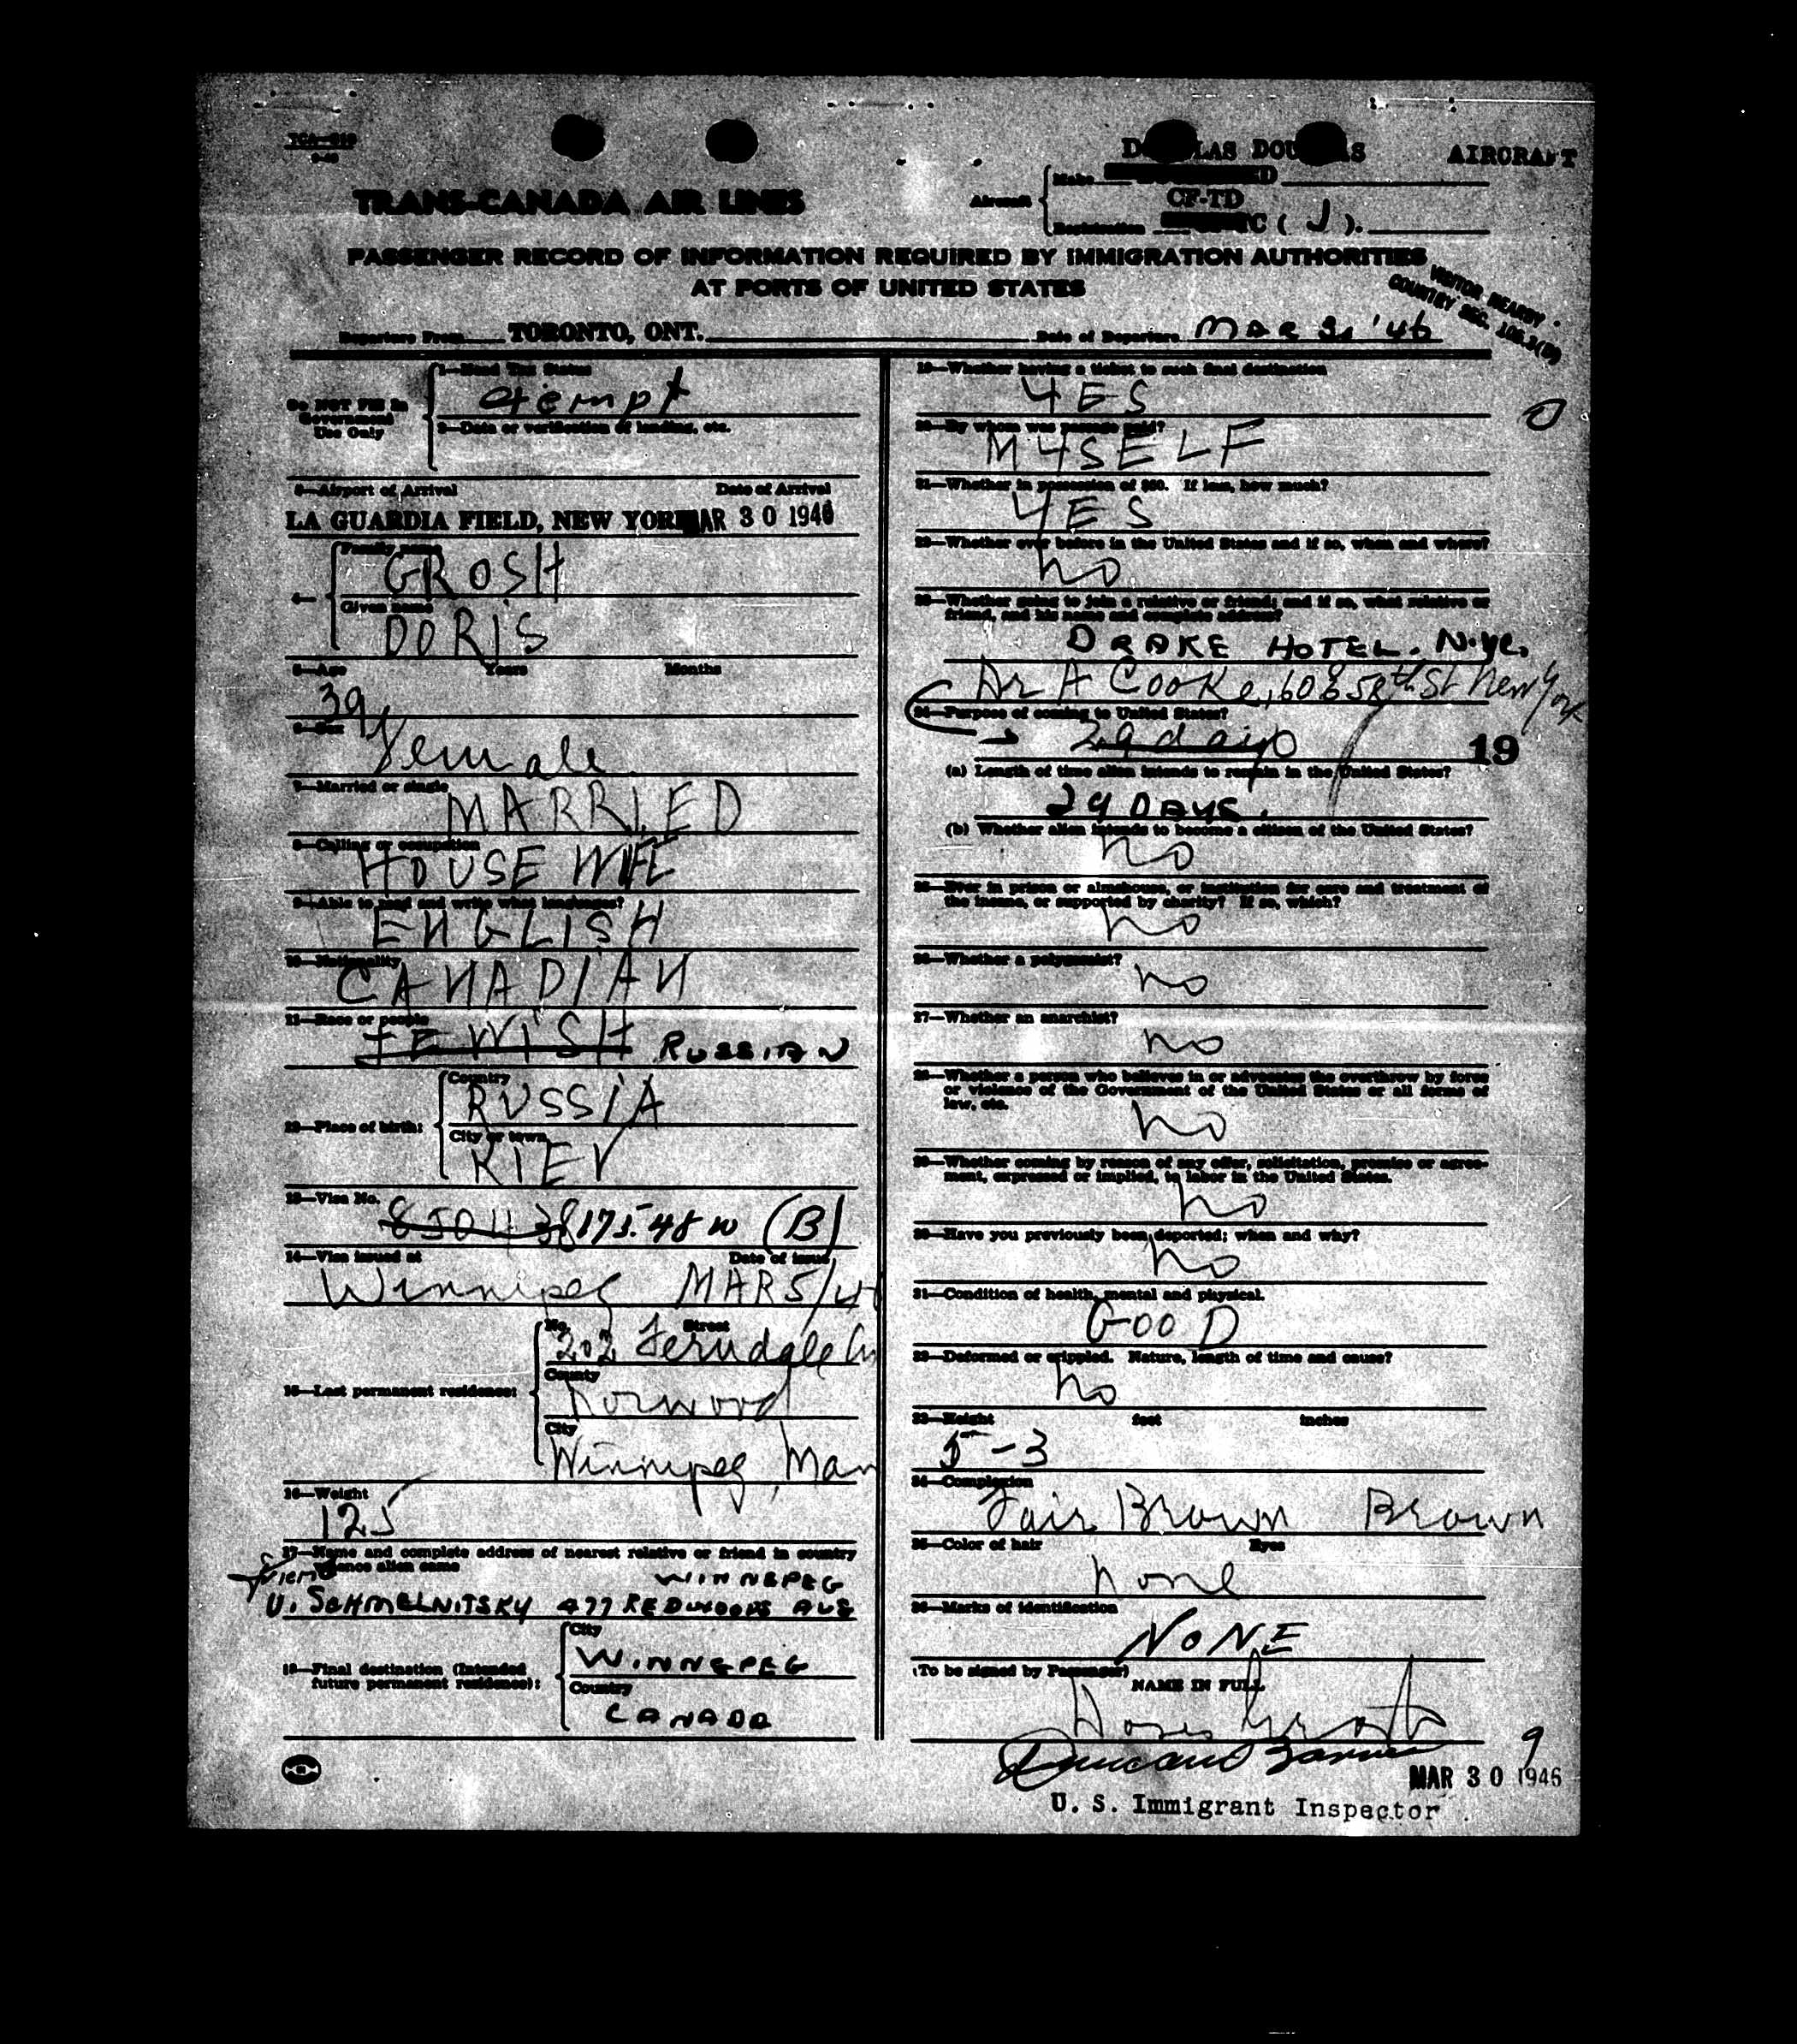 TCA-
TRANS-CANADA AIR LINES
D LAS DOU S AIRCRAFT
Aircraft
Make
CF-TD
Registration C ( J ).
PASSENGER RECORD OF INFORMATION REQUIRED BY IMMIGRATION AUTHORITIES
AT PORTS OF UNITED STATES
VISITOR NEARBY
COUNTRY SEC.
Departure From TORONTO, ONT. Date of Departure MAR '46
Do NOT Fill in
Government
Use Only
1—Head Tax Status
2—Date or verification of landing, etc.
3—Airport of Arrival Date of Arrival
LA GUARDIA FIELD, NEW YORK MAR 30 1946
4—
Family name
GROSH
Given name
DORIS
5—Age Years Months
39
6—Sex
Female
7—Married or single
MARRIED
8—Calling or occupation
HOUSE WIFE
9—Able to read and write what languages?
ENGLISH
10—Nationality
CANADIAN
11—Race or people
JEWISH RUSSIAN
12—Place of birth:
Country
RUSSIA
City or town
KIEV
13—Visa No.
850438 175-48 W (B)
14—Visa issued at Date of issue
Winnipeg MAR 5/
15—Last permanent residence:
No. Street
202 Ferndale
County
Norwood
City
Winnipeg, Man
16—Weight
125
17—Name and complete address of nearest relative or friend in country
whence alien came
WINNEPEG
U. SCHMELNITSKY 477 REDWOODS AVE
18—Final destination (Intended
future permanent residence):
City
WINNEPEG
Country
CANADA
19—Whether having a ticket to such final destination
YES
20—By whom was passage paid?
MYSELF
21—Whether in possession of $60. If less, how much?
YES
22—Whether ever before in the United States and if so, when and where?
no
23—Whether going to join a relative or friend; and if so, what relative or
friend, and his name and complete address?
DRAKE HOTEL. N.YC.
Dr A Cooke, 608 58th St New York
24—Purpose of coming to United States?
29 days 19
(a) Length of time alien intends to remain in the United States?
29 DAYS.
(b) Whether alien intends to become a citizen of the United States?
no
25—Ever in prison or almshouse, or institution for care and treatment of
the insane, or supported by charity? If so, which?
no
26—Whether a polygamist?
no
27—Whether an anarchist?
no
28—Whether a person who believes in or advocates the overthrow by force
or violence of the Government of the United States or all forms of
law, etc.
no
29—Whether coming by reason of any offer, solicitation, promise or agree-
ment, expressed or implied, to labor in the United States.
no
30—Have you previously been deported; when and why?
no
31—Condition of health, mental and physical.
GOOD
32—Deformed or crippled. Nature, length of time and cause?
no
33—Height feet inches
5-3
34—Complexion
Fair Brown Brown
35—Color of hair Eyes
none
36—Marks of identification
NONE
(To be signed by Passenger)
NAME IN FULL
Doris Grosh
9
MAR 30 1946
U. S. Immigrant Inspector